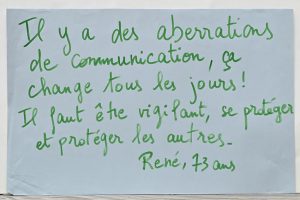 Il y a des aberrations
de communication, ça
change tous les jours !
Il faut être vigilant, se protéger
et protéger les autres_
René, 73 ans